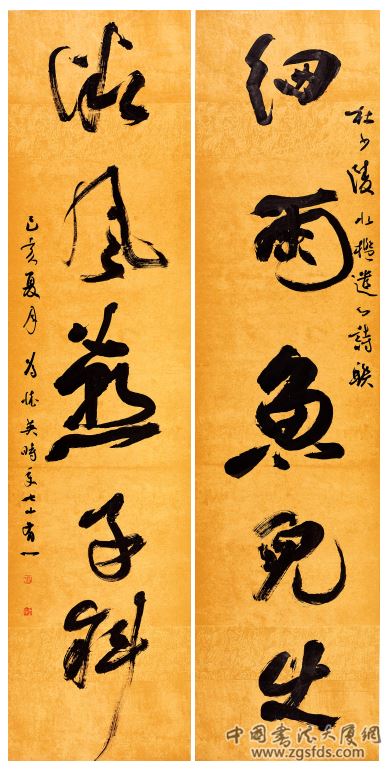 杜少陵水檻遣心詩聯
細雨魚兒出
微风燕子斜
己亥夏月 英時年七十有一
中国书法大厦网
www.zgsfds.com